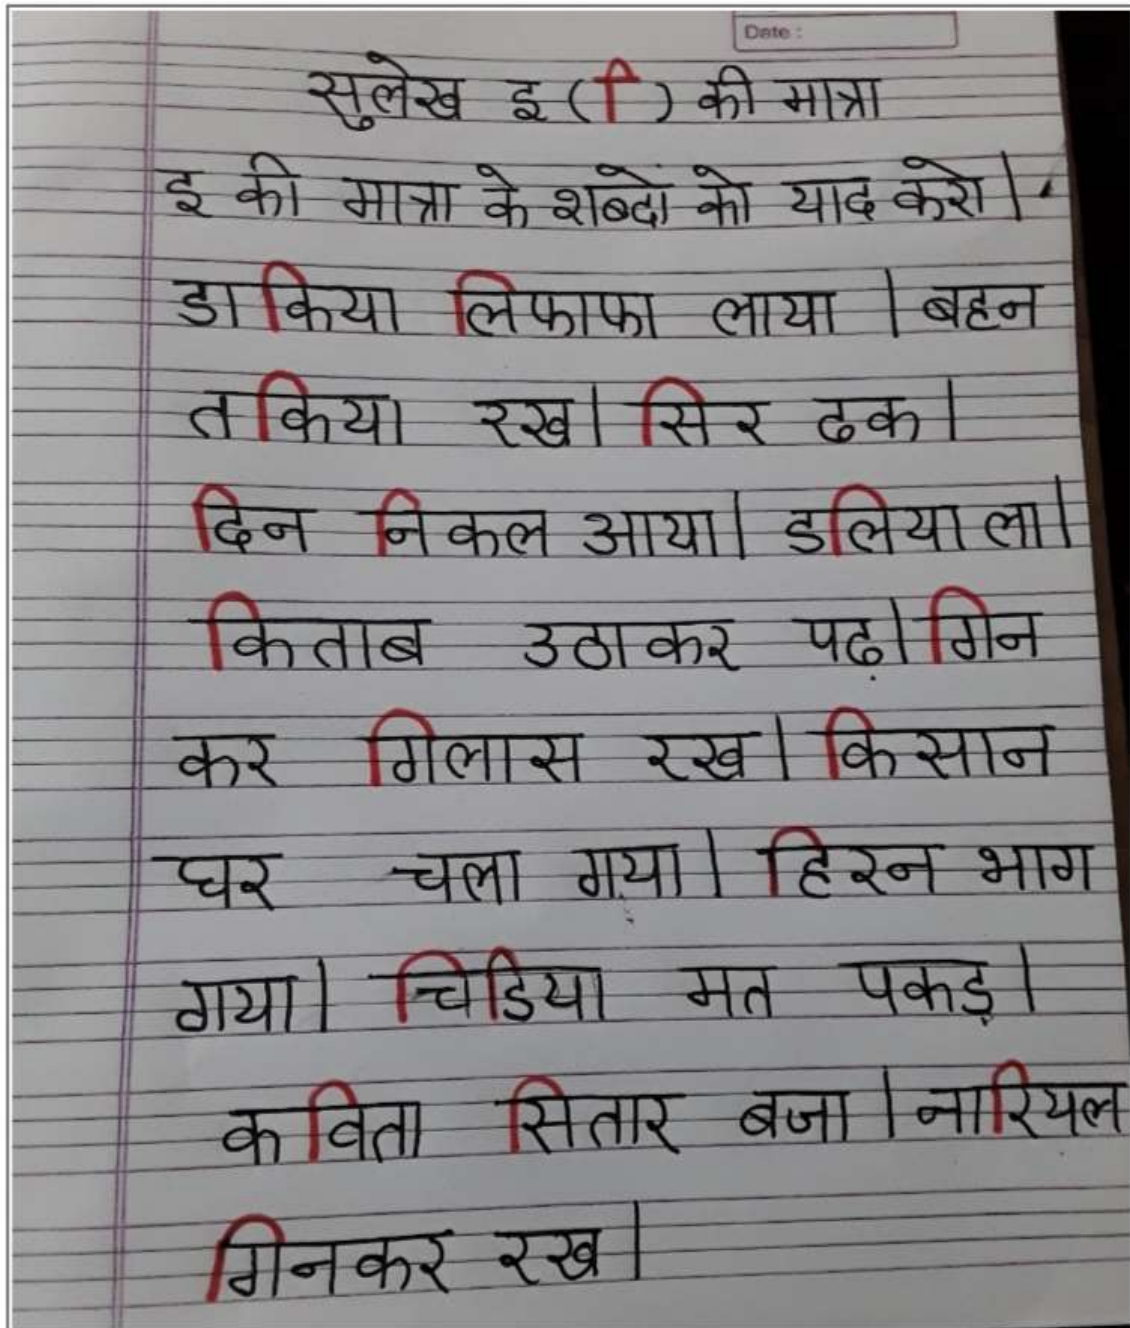 Date :
सुलेख इ (ि) की मात्रा
इ की मात्रा के शब्दों को याद करो।
डाकिया लिफाफा लाया । बहन
तकिया रख। सिर ढक।
दिन निकल आया। डलिया ला।
किताब उठाकर पढ़। गिन
कर गिलास रख। किसान
घर चला गया। हिरन भाग
गया। चिडिया मत पकड़।
कविता सितार बजा। नारियल
गिनकर रख।